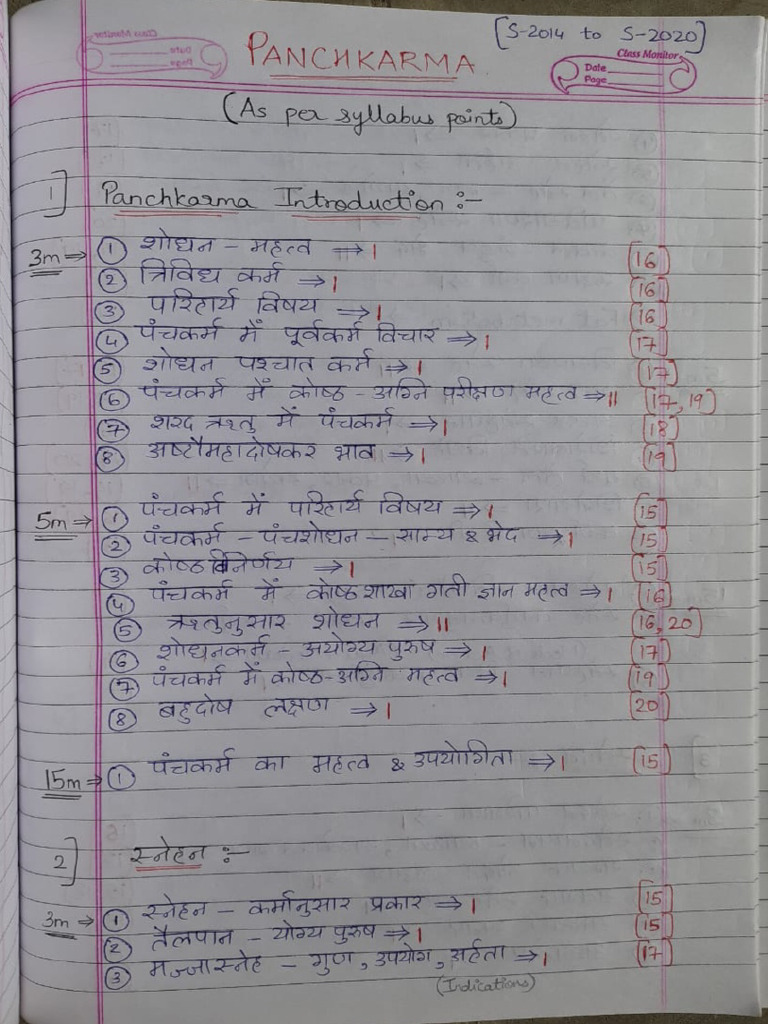 [S-2014 to S-2020]
PANCHKARMA
Class Monitor
Date
Page
(As per syllabus points)
1] Panchkarma Introduction :-
3m ⇒ ① शोधन - महत्व ⇒ I [16]
② त्रिविध कर्म ⇒ I [16]
③ परिहार्य विषय ⇒ I [16]
④ पंचकर्म में पूर्वकर्म विचार ⇒ I [17]
⑤ शोधन पश्चात कर्म ⇒ I [17]
⑥ पंचकर्म में कोष्ठ - अग्नि परीक्षण महत्व ⇒ II [17, 19]
⑦ शरद ऋतु में पंचकर्म ⇒ I [18]
⑧ अष्टौमहादोषकर भाव ⇒ I [19]
5m ⇒ ① पंचकर्म में परिहार्य विषय ⇒ I [15]
② पंचकर्म - पंचशोधन - साम्य & भेद ⇒ I [15]
③ कोष्ठ विनिर्णय ⇒ I [15]
④ पंचकर्म में कोष्ठ शाखा गती ज्ञान महत्व ⇒ I [16]
⑤ ऋतुनुसार शोधन ⇒ II [16, 20]
⑥ शोधनकर्म - अयोग्य पुरुष ⇒ I [17]
⑦ पंचकर्म में कोष्ठ-अग्नि महत्व ⇒ I [19]
⑧ बहुदोष लक्षण ⇒ I [20]
15m ⇒ ① पंचकर्म का महत्व & उपयोगिता ⇒ I [15]
2] स्नेहन :-
3m ⇒ ① स्नेहन - कर्मानुसार प्रकार ⇒ I [15]
② तैलपान - योग्य पुरुष ⇒ I [15]
③ मज्जास्नेह - गुण, उपयोग, अर्हता ⇒ I [17]
(Indications)